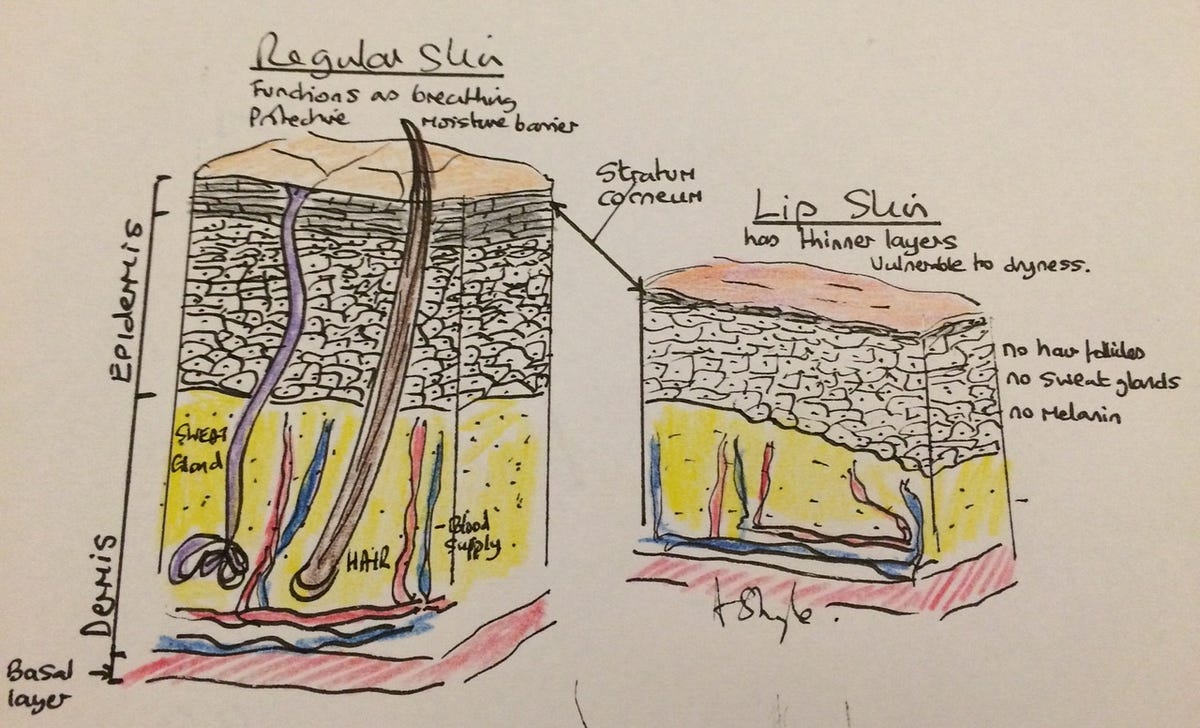 Regular Skin
Functions as breathing
Protective moisture barrier
Stratum
corneum
Lip Skin
has thinner layers
Vulnerable to dryness.
Epidermis
no hair follicles
no sweat glands
no melanin
SWEAT
Gland
Blood
Supply
HAIR
Dermis
Basal
layer